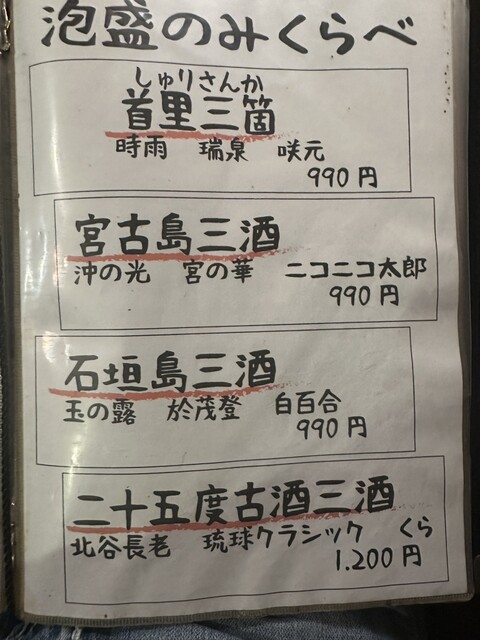 泡盛のみくらべ
しゅりさんか
首里三箇
時雨 瑞泉 咲元
990円
宮古島三酒
沖の光 宮の華 ニコニコ太郎
990円
石垣島三酒
玉の露 於茂登 白百合
990円
二十五度古酒三酒
北谷長老 琉球クラシック くら
1.200円